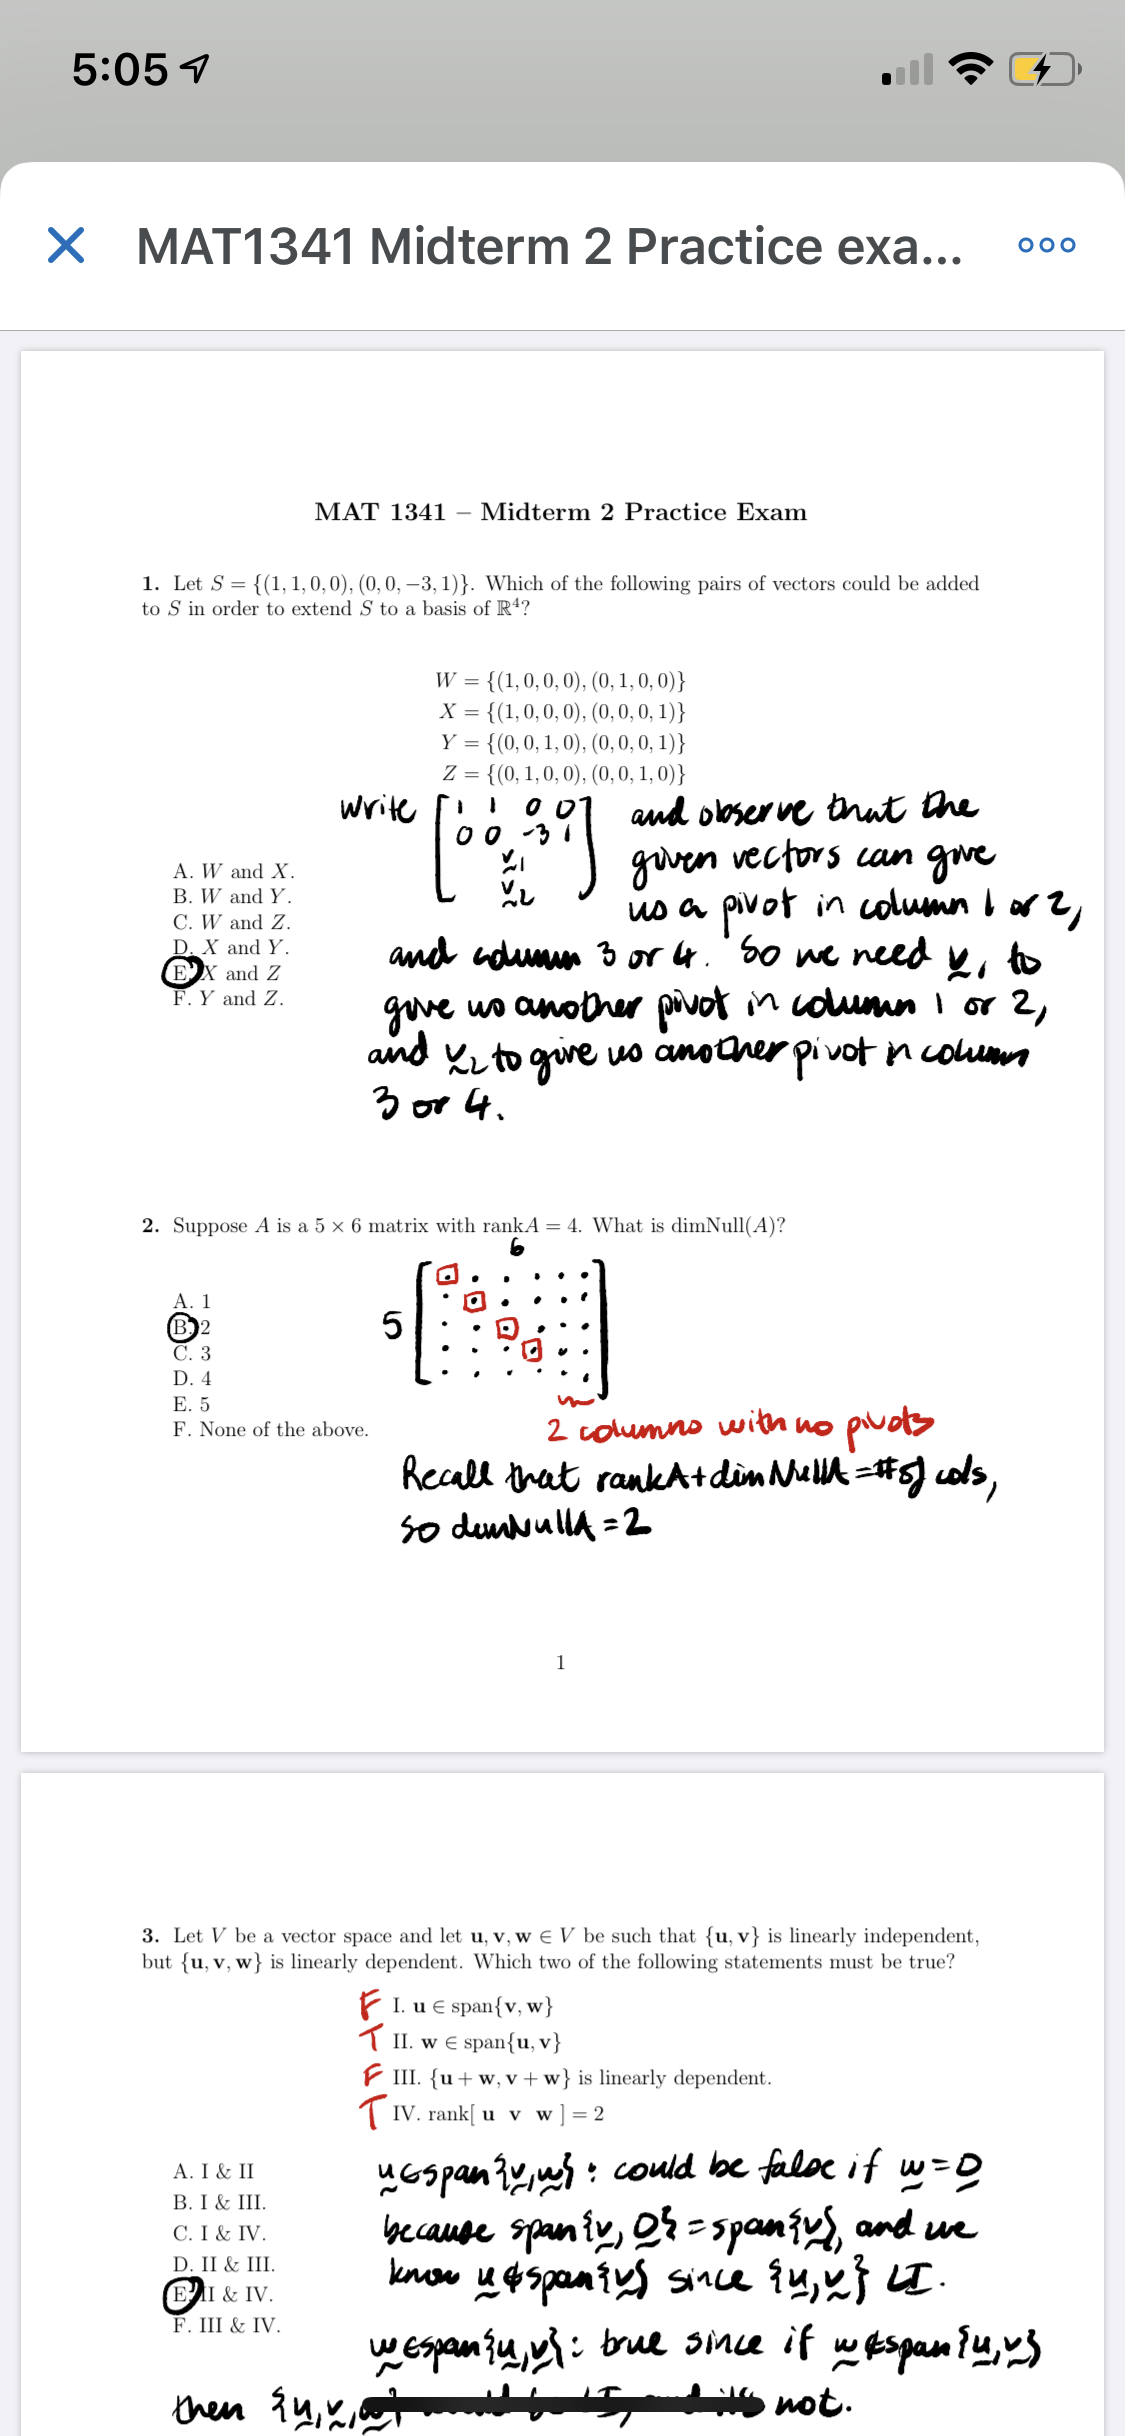 5:05
MAT1341 Midterm 2 Practice exa...
MAT 1341 – Midterm 2 Practice Exam
1. Let S = {(1, 1, 0, 0), (0, 0, −3, 1)}. Which of the following pairs of vectors could be added
to S in order to extend S to a basis of ℝ⁴?
W = {(1, 0, 0, 0), (0, 1, 0, 0)}
X = {(1, 0, 0, 0), (0, 0, 0, 1)}
Y = {(0, 0, 1, 0), (0, 0, 0, 1)}
Z = {(0, 1, 0, 0), (0, 0, 1, 0)}
write [1 1 0 0] and observe that the
0 0 -3 1
v1 given vectors can give
v2 us a pivot in column 1 or 2,
A. W and X.
B. W and Y.
C. W and Z.
D. X and Y.
E. X and Z
F. Y and Z.
and column 3 or 4. So we need v1 to
give us another pivot in column 1 or 2,
and v2 to give us another pivot in column
3 or 4.
2. Suppose A is a 5 × 6 matrix with rankA = 4. What is dimNull(A)?
6
5
A. 1
B. 2
C. 3
D. 4
E. 5
F. None of the above.
2 columns with no pivots
Recall that rankA + dim NullA = # of cols,
so dimNullA = 2
1
3. Let V be a vector space and let u, v, w ∈ V be such that {u, v} is linearly independent,
but {u, v, w} is linearly dependent. Which two of the following statements must be true?
F I. u ∈ span{v, w}
T II. w ∈ span{u, v}
F III. {u + w, v + w} is linearly dependent.
T IV. rank[ u v w ] = 2
A. I & II
B. I & III.
C. I & IV.
D. II & III.
E. II & IV.
F. III & IV.
u ∈ span{v, w}: could be false if w = 0
because span{v, 0} = span{v}, and we
know u ∉ span{v} since {u, v} LI.
w ∈ span{u, v}: true since if w ∉ span{u, v}
then {u, v, w} would be LI, and it's not.